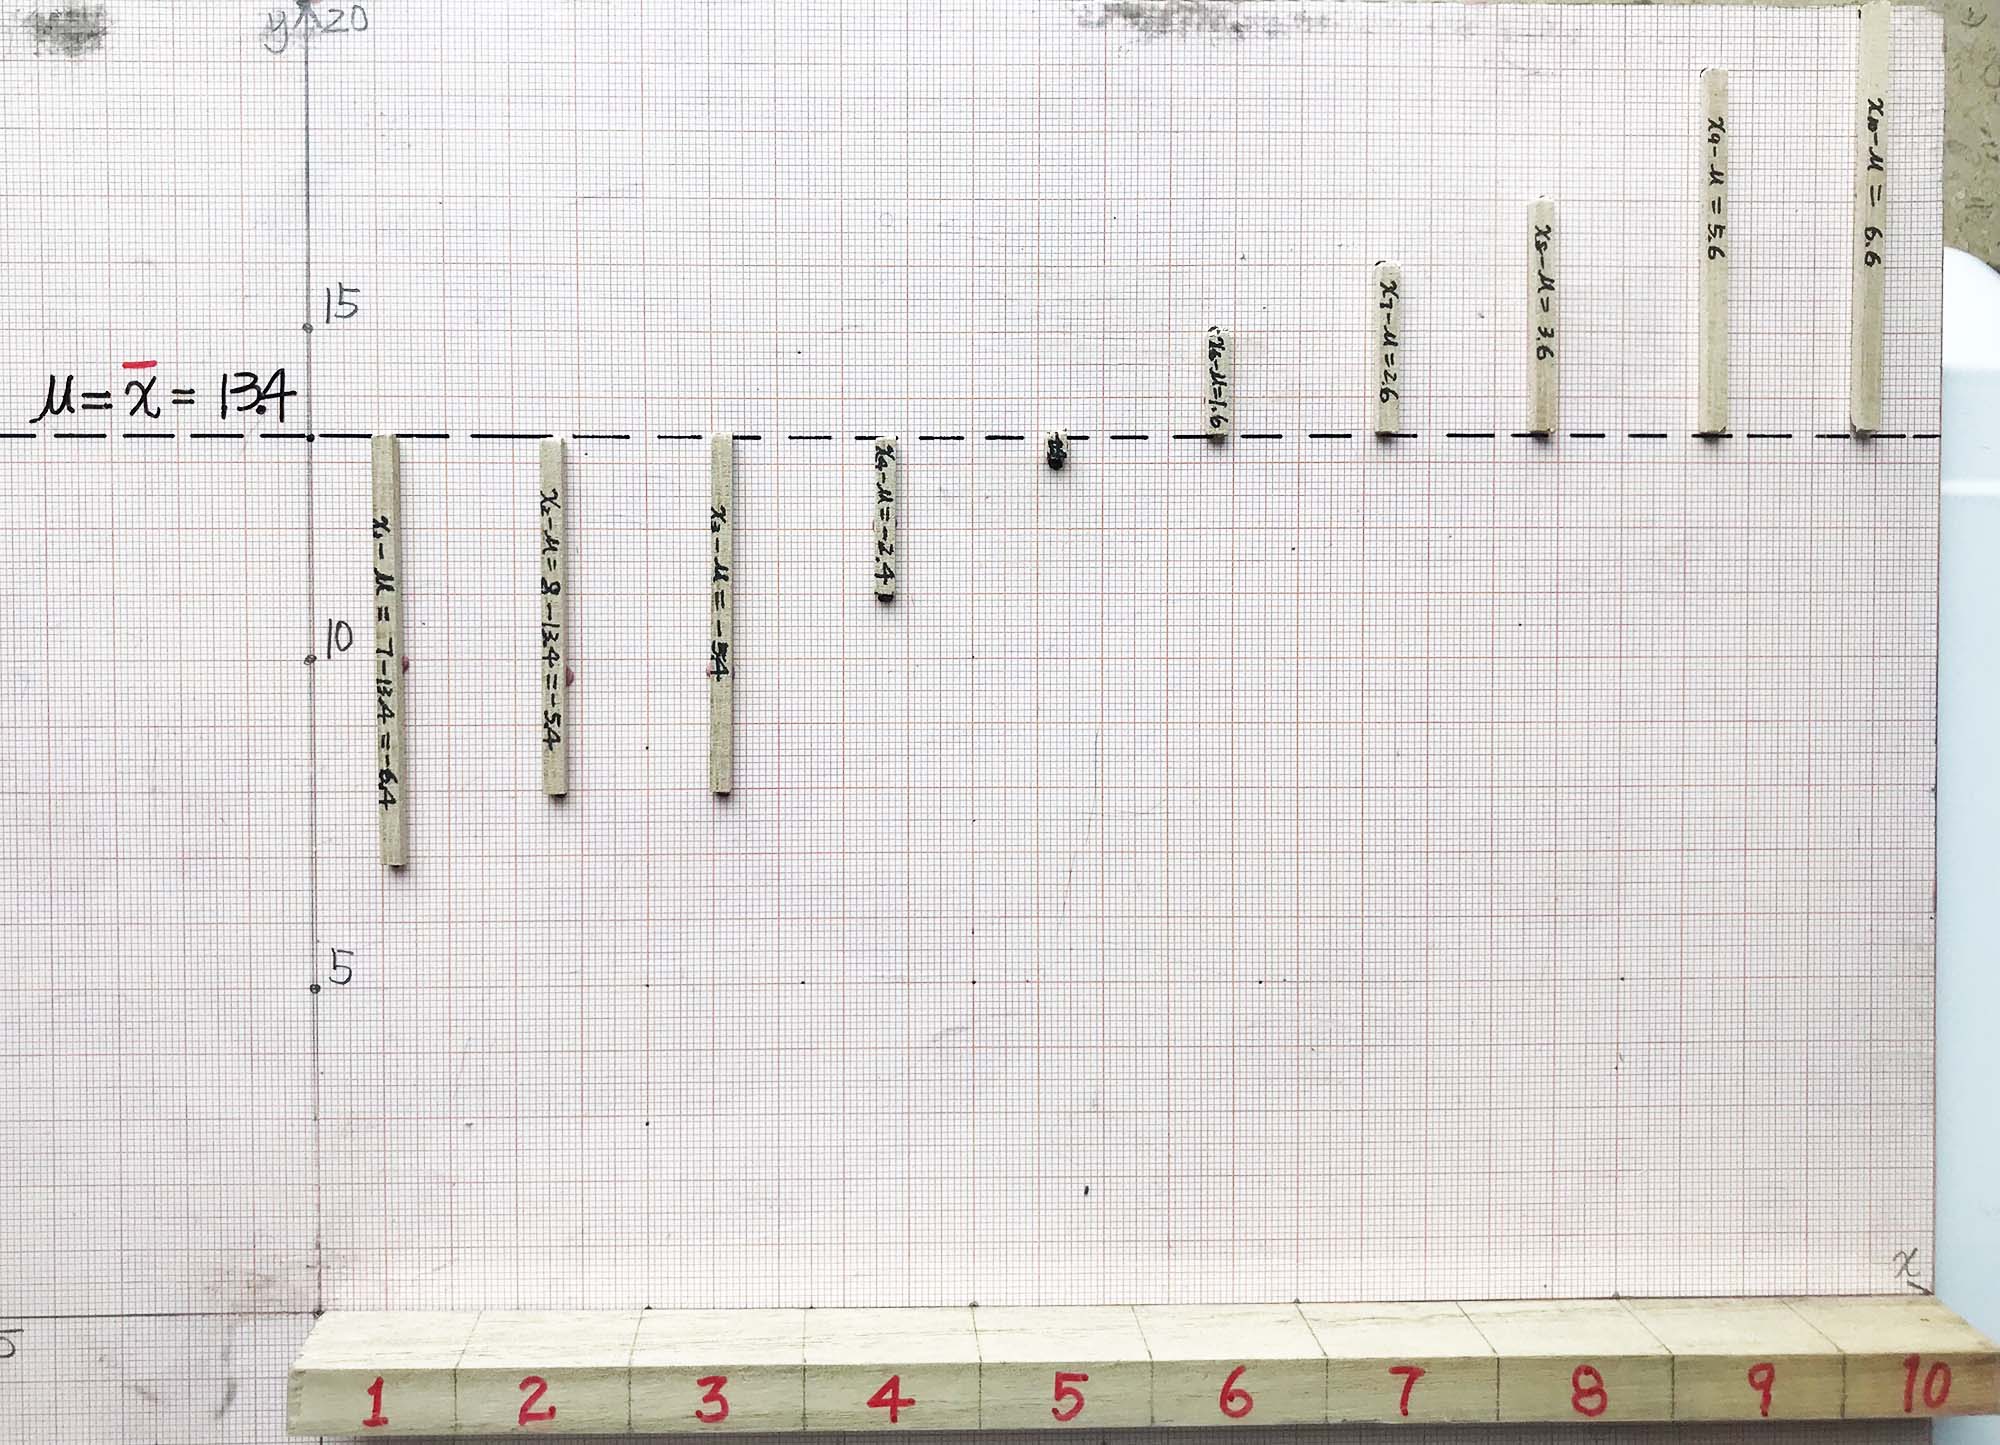 y 20
15
μ = x̄ = 13.4
10
5
x₁ - μ = 7 - 13.4 = -6.4
x₂ - μ = 8 - 13.4 = -5.4
x₃ - μ = -5.4
x₄ - μ = -2.4
x₆ - μ = 1.6
x₇ - μ = 2.6
x₈ - μ = 3.6
x₉ - μ = 5.6
x₁₀ - μ = 6.6
x
5
1 2 3 4 5 6 7 8 9 10